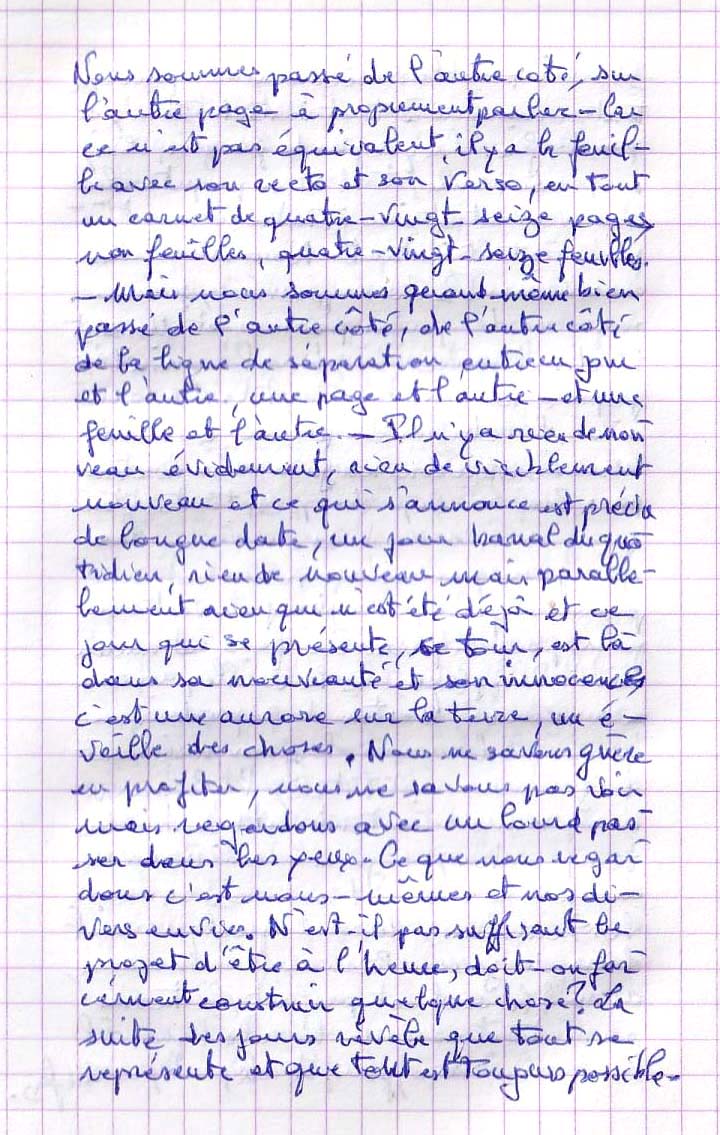 Nous sommes passé de l'autre coté, sur
l'autre page à proprement parler – car
ce n'est pas équivalent, il y a la feuil-
le avec son recto et son verso, en tout
un carnet de quatre-vingt-seize pages
non feuilles, quatre-vingt-seize feuilles.
– Mais nous sommes quand même bien
passé de l'autre côté, de l'autre côté
de la ligne de séparation entre un jour
et l'autre, une page et l'autre – et une
feuille et l'autre. – Il n'y a rien de nou
veau évidemment, rien de visiblement
nouveau et ce qui s'annonce est précis
de longue date, un jour banal du quo
tidien, rien de nouveau mais parallè-
lement rien qui n'est été déjà et ce
jour qui se présente, se tour, est là
dans sa nouveauté et son innocence,
c'est une aurore sur la terre, un é-
veille des choses. Nous ne savons guère
en profiter, nous ne savons pas voir
mais regardons avec un lourd pas
ser dans les yeux. Ce que nous regar
dons c'est nous-mêmes et nos di-
vers envies. N'est-il pas suffisant le
projet d'être à l'heure, doit-on for
cément construir quelque chose? La
suite des jours révèle que tout se
représente et que tout est toujours possible.